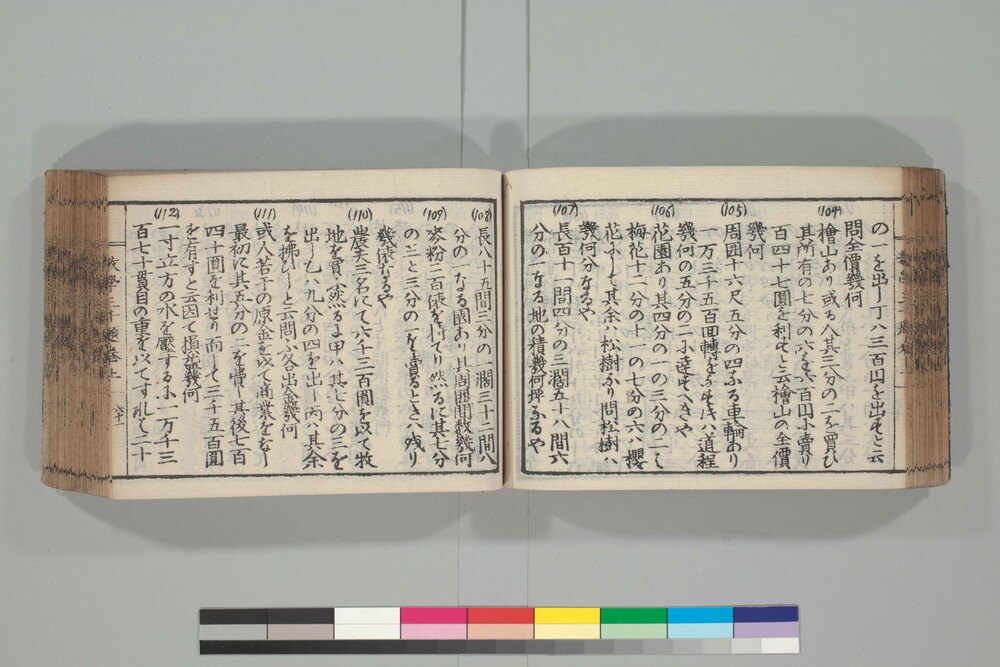 の一を出し丁ハ三百円を出すと云
問全價幾何
(104)
檜山あり或る人其三分の二を買ひ
其所有の七分の六を六百円に賣り
百四十七圓を利すと云檜山の全價
幾何
(105)
周囲十六尺五分の四なる車輪あり
一万三千五百回轉をなす片ハ道程
幾何の五分の二に達すへきや
(106)
花園あり其四分の一の三分の一ハ
梅花十二分の十一の七分の六ハ櫻
花にして其余ハ松樹なり問松樹ハ
幾何分なるや
(107)
長百十一間四分の三濶五十八間六
分の一なる地の積幾何坪なるや
(108)
長八十五間三分の一濶三十二間八
分の一なる園あり其周囲間数幾何
(109)
麥粉二百俵を持てり然るに其七分
の三と三分の一を賣るときハ残り
幾俵なるや
(110)
農夫三名にて六十三百圓を以て牧
地を買ふ然るに甲ハ其七分の三を
出し乙ハ九分の四を出し丙ハ其余
を拂ひしと云問ふ各出金幾何
(111)
或人若干の原金を以て商業をなし
最初に其五分の二を費し其後七百
四十圓を利せり而して三千五百圓
を有すと云因て損益幾何
(112)
一寸立方の水を壓するに一万千三
百七十貫目の重を以てす凡て二十